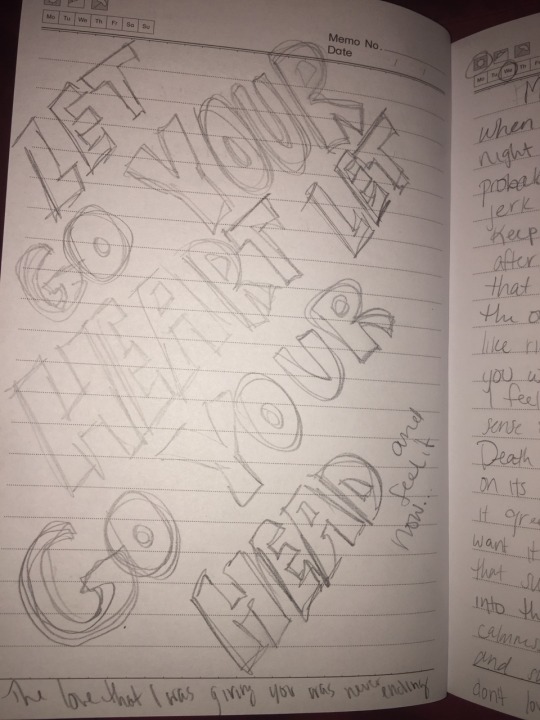 Mo Tu We Th Fr Sa Su
Memo No.
Date / /
LET YOUR
HEART LET
GO YOUR
HEAD GO
and
feel it
now...
The love that I was giving you was never ending
Mo Tu We Th F
M
When
night
jerk
Keep
after
that
the
like
you
I feel
sense
Death
on its
it
want it
that
into the
calmness
and
dont